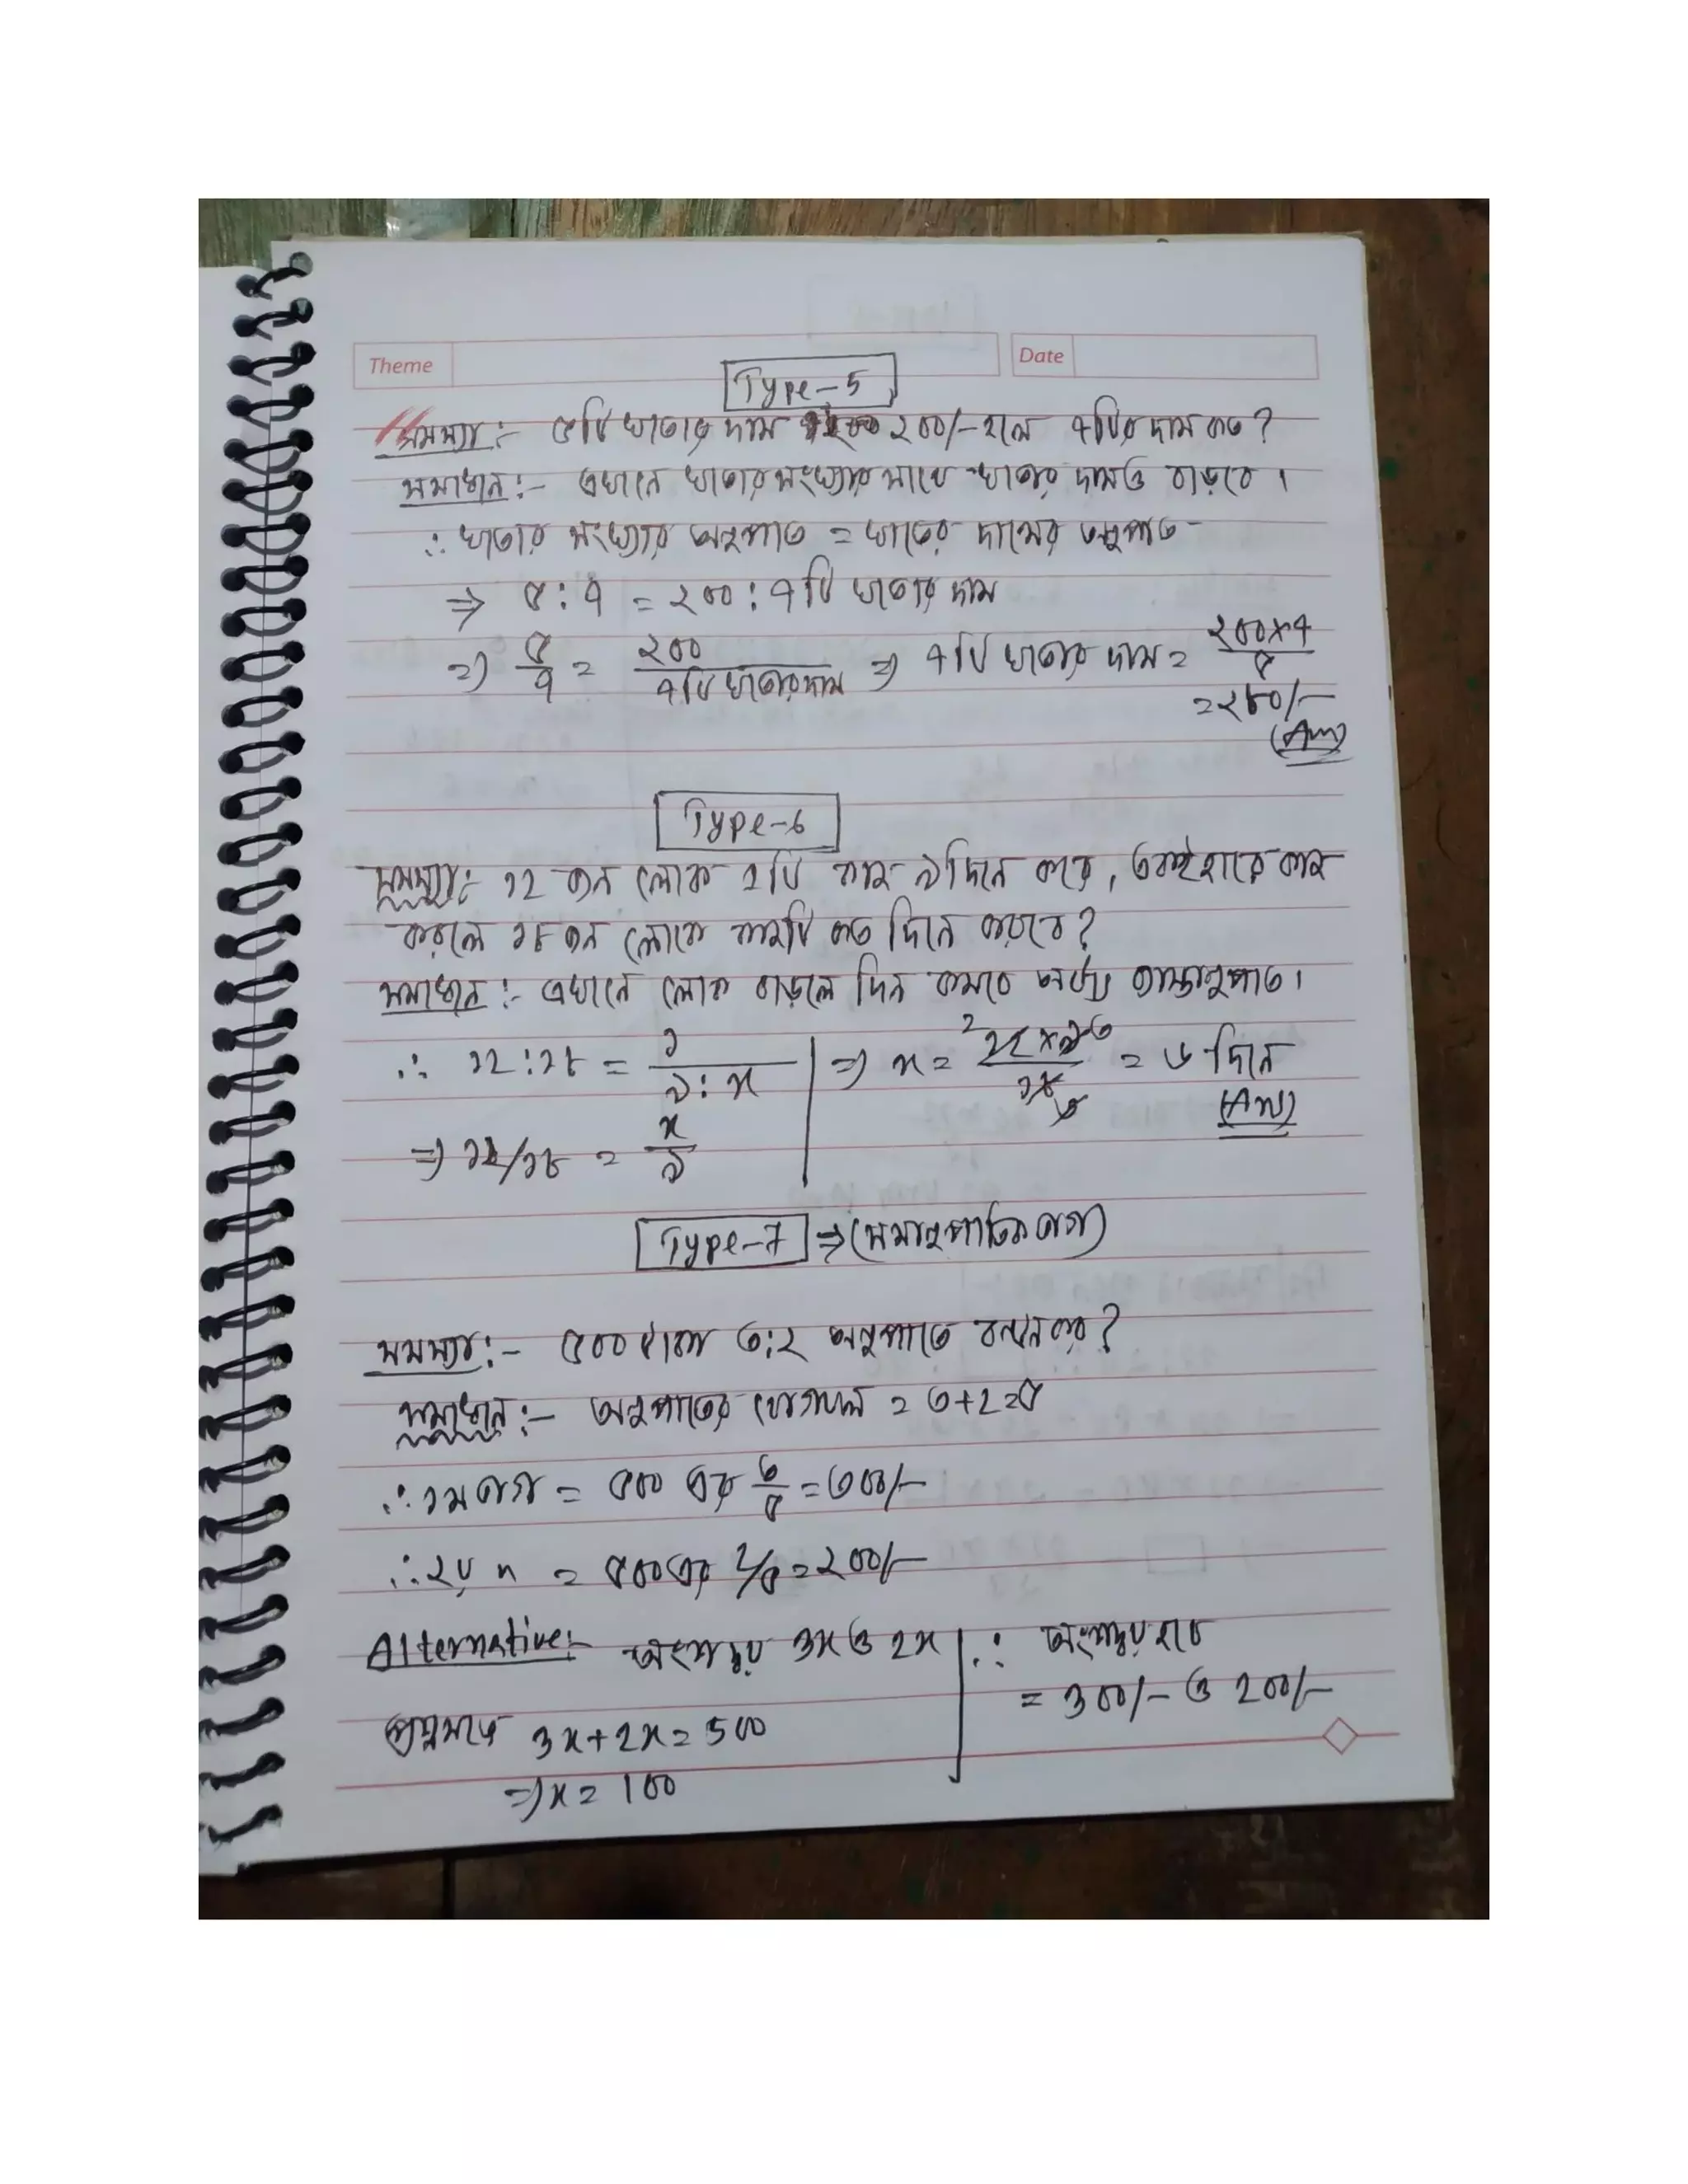 Theme
Date
Type-5
সমস্যা:- ৫টি খাতার দাম ২০০/- হলে ৭টির দাম কত?
সমাধান:- এখানে খাতার সংখ্যার সাথে খাতার দামও বাড়বে।
∴ খাতার সংখ্যার অনুপাত = খাতার দামের অনুপাত
⇒ ৫:৭ = ২০০:৭টি খাতার দাম
⇒ ৫/৭ = ২০০/৭টি খাতার দাম ⇒ ৭টি খাতার দাম = ২০০×৭/৫
= ২৮০/-
(Ans)
Type-6
সমস্যা:- ১২ জন লোক ১টি কাজ ৯ দিনে করে, একই হারে কাজ
করলে ১৮ জন লোকে কাজটি কত দিনে করবে?
সমাধান:- এখানে লোক বাড়লে দিন কমবে অর্থাৎ ব্যাস্তানুপাত।
∴ ১২:১৮ = ১/৯:x ⇒ x = ১২×৯/১৮ = ৬ দিনে
(Ans)
⇒ ১২/১৮ = x/৯
Type-7 ⇒ (সমানুপাতিক ভাগ)
সমস্যা:- ৫০০ টাকা ৩:২ অনুপাতে বন্টন কর?
সমাধান:- অনুপাতের যোগফল = ৩+২=৫
∴ ১ম ভাগ = ৫০০ এর ৩/৫ = ৩০০/-
∴ ২য় " = ৫০০ এর ২/৫ = ২০০/-
Alternative:- অংশদ্বয় 3x ও 2x
প্রশ্নমতে 3x+2x=500
⇒ x = 100
∴ অংশদ্বয় হবে
= 300/- ও 200/-